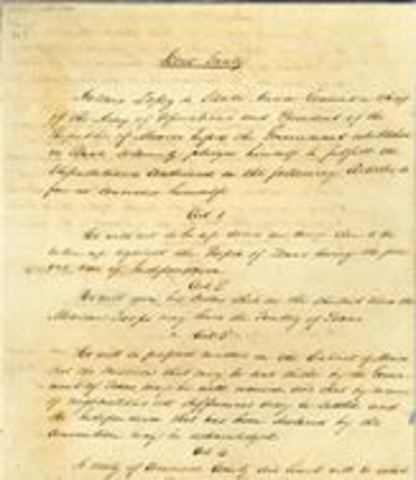 Antonio Lopez de Santa Anna General in Chief
of the Army of Operations and President of the
Republic of Mexico before the Government established
in Texas solemnly pledges himself to fulfill the
Stipulations contained in the following Articles
so far as concerns himself
Art 1
He will not take up arms nor cause them to be
taken up against the People of Texas during the present
War of Independence
Art 2
He will give his Orders that in the shortest time the
Mexican Troops may leave the Territory of Texas
Art 3
He will so prepare matters in the Cabinet of Mexico
that the Mission that may be sent thither by the Govern
ment of Texas may be well received and that by means
of negotiations all differences may be settled and
the Independence that has been declared by the
Convention may be acknowledged
Art 4
A treaty of Commerce Amity and limits will be